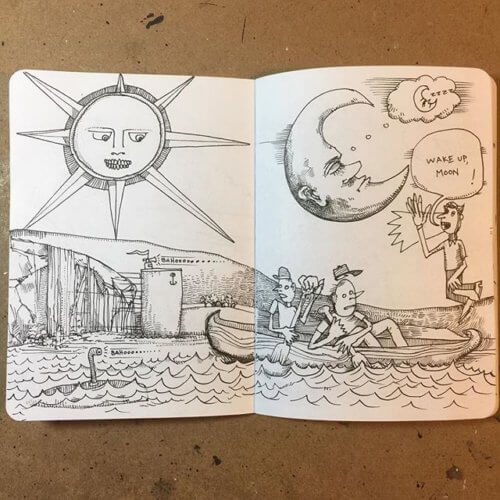 BAHOOOO
BAHOOOO
ZZZZ
WAKE UP,
MOON
!